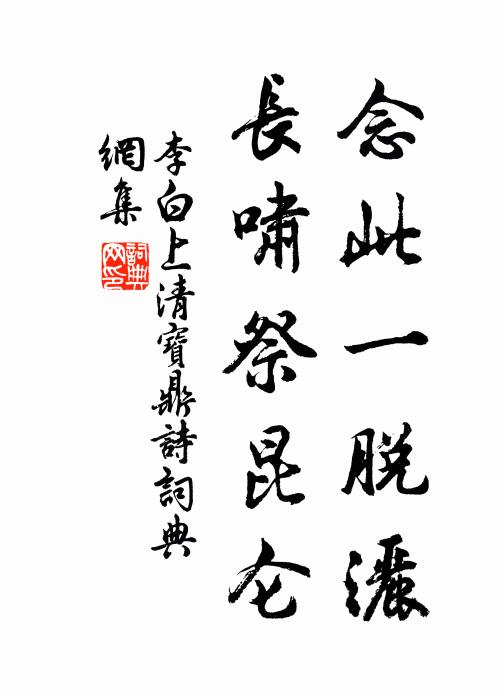 念此一脱灑
長嘯祭昆仑
李白上清寶鼎詩詞典
網集
詞典
网印